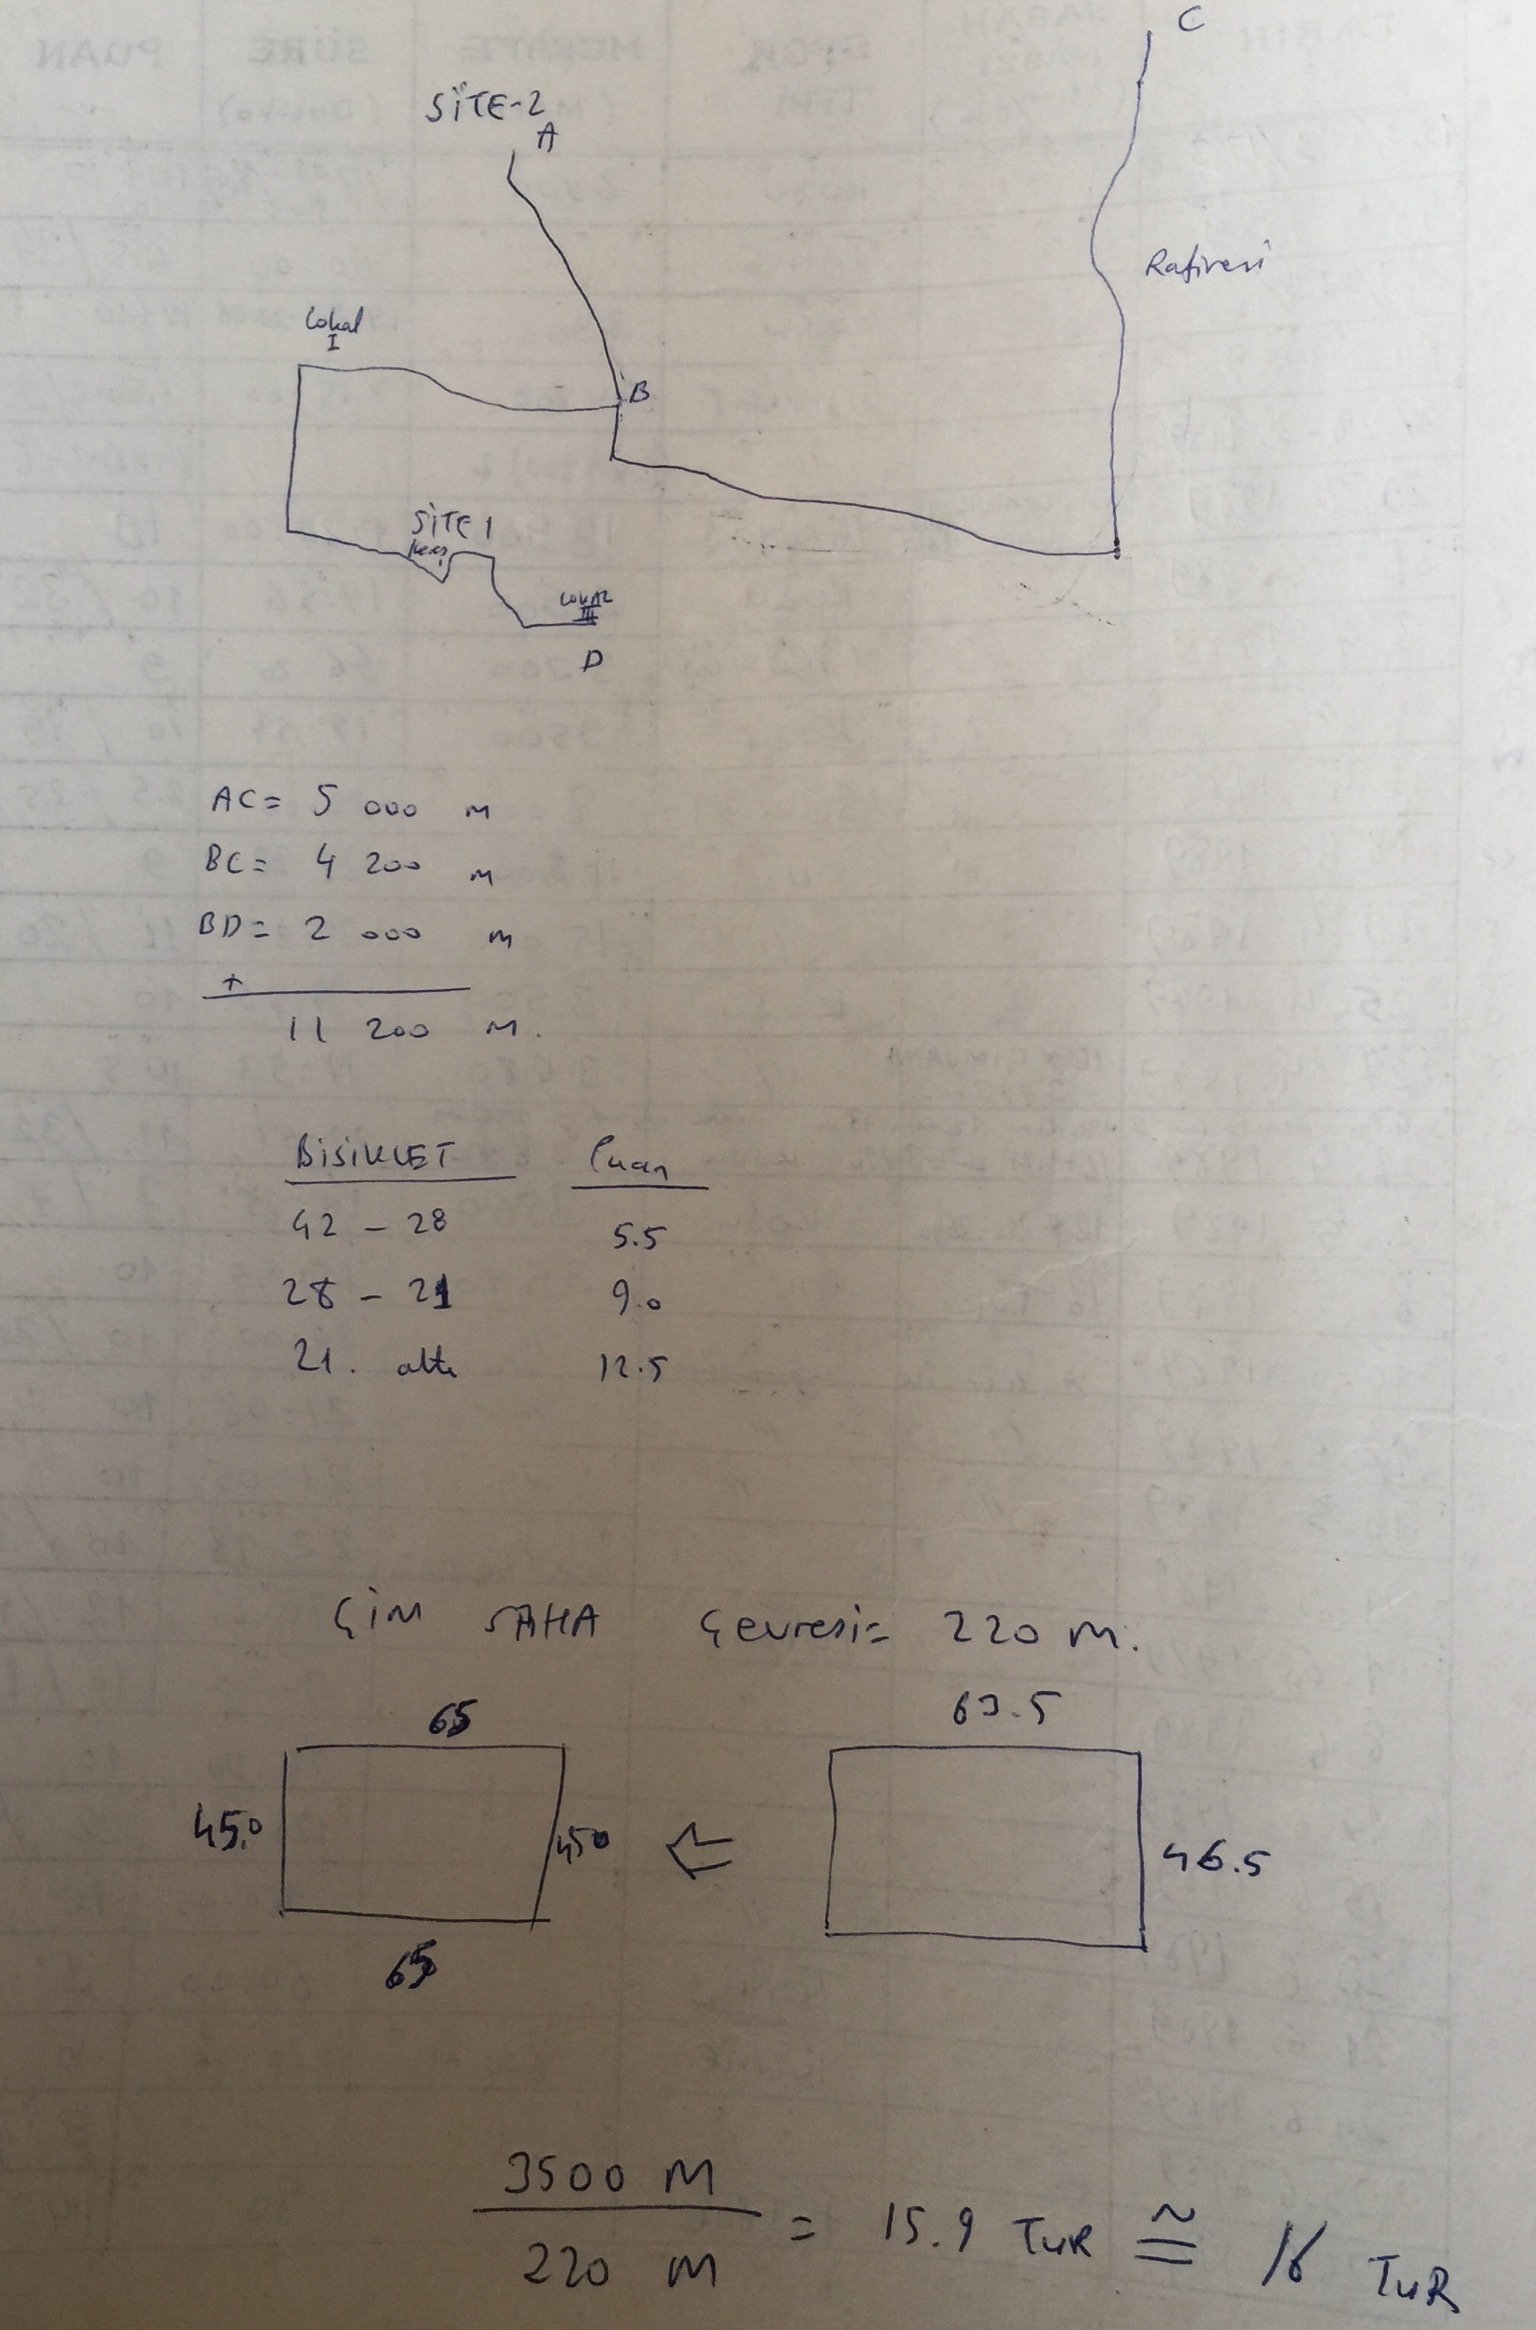 C
SİTE-2
A
Rafineri
Lokal
I
B
SİTE 1
LOKAL
III
D
AC= 5 000 M
BC= 4 200 M
BD= 2 000 M
+
11 200 M.
BİSİKLET Puan
42 - 28 5.5
28 - 21 9.0
21. altı 12.5
ÇİM SAHA Çevresi= 220 M.
65 63.5
45.0 450 ⇐ 46.5
65
3500 M
220 M
= 15.9 TUR ≅ 16 TUR